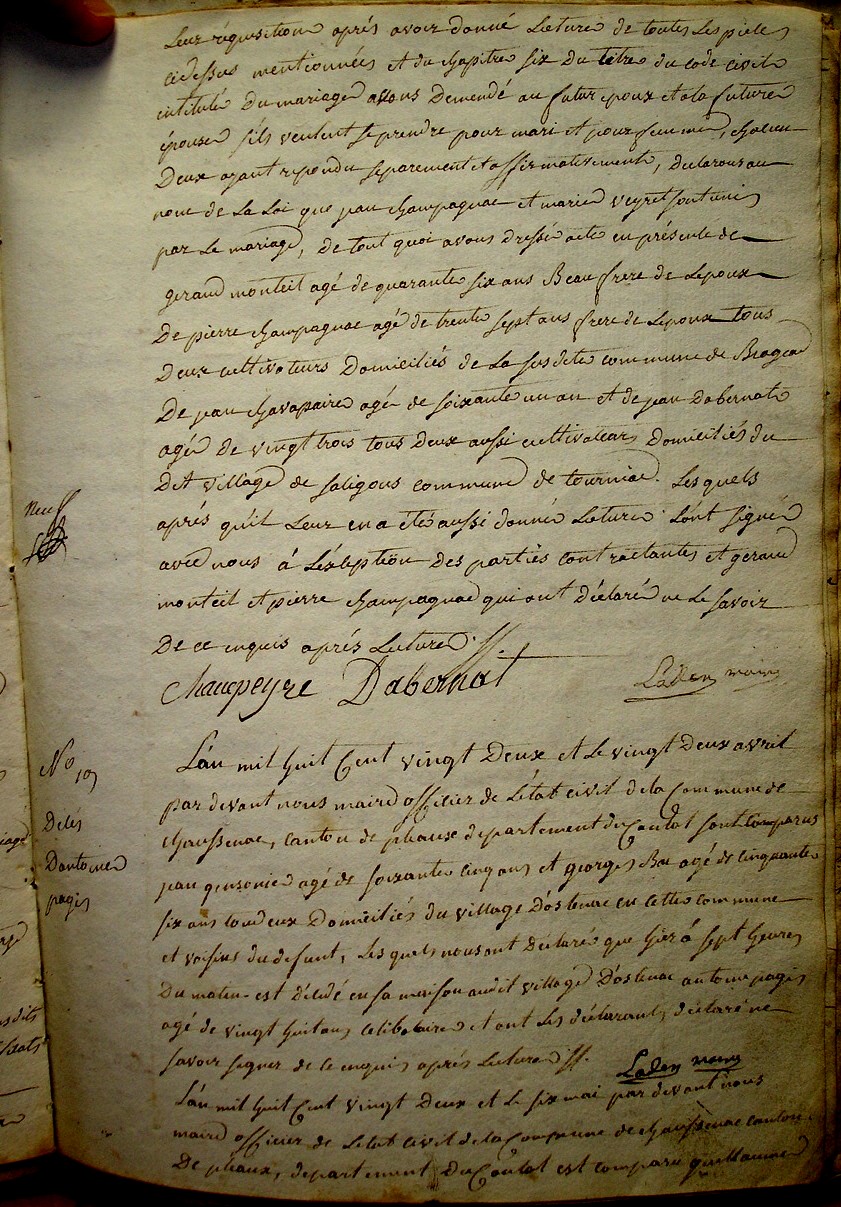 Leur réquisition aprés avoir donné Lecture de toutes Les pieces
cidessus mentionnées et du chapitre six du titre du code civil
intitulé du mariage avons Demendé au futur epoux et a la future
épouse s'ils veulent se prendre pour mari et pour femme, chacun
Deux ayant repondu séparement et affirmativement, declarons au
nom de La Loi que jean champagnac et marie veyret sont unis
par Le mariage, De tout quoi avons dressé acte en présence de
geraud monteil agé de quarante six ans Beau frere de Lepoux
De pierre champagnac agé de trente sept ans frere de Lepoux tous
Deux cultivateurs Domiciliés de La susdite commune de Brageac
De jean agé de soixante un an et de jean Dabernat
agé De vingt trois tous Deux aussi cultivateurs Domiciliés du
Dit village de saligous commune de tourniac. Les quels
aprés qu'il Leur en a été aussi donné Lecture L'ont signé
avec nous á L'éxéption des parties contractantes et geraud
monteil et pierre champagnac qui ont déclaré ne Le savoir
De ce enquis aprés Lecture ff.
Dabernat
maire
No 19
Décés
Dantoine
pagis
L'an mil huit Cent vingt Deux et Le vingt Deux avril
par devant nous maire officier de L'état civil de la Commune de
chaussenac, canton de pleaux departement du Cantal sont comparus
jean agé de soixante cinq ans et georges Bac agé de cinquante
six ans tou deux Domiciliés du village D'ostenac en cette commune
et voisins du defunt, Les quels nous ont declaré que hier á sept heures
Du matin est décédé en sa maison audit village D'ostenac antoine pagis
agé de vingt huit ans celibataire et ont Les déclarants déclaré ne
savoir signer de ce enquis aprés Lecture ff.
maire
L'an mil huit Cent vingt Deux et Le six mai par devant nous
maire officier de L'état civil de la Commune de chaussenac canton
De pleaux, departement Du Cantal est comparu guillaume